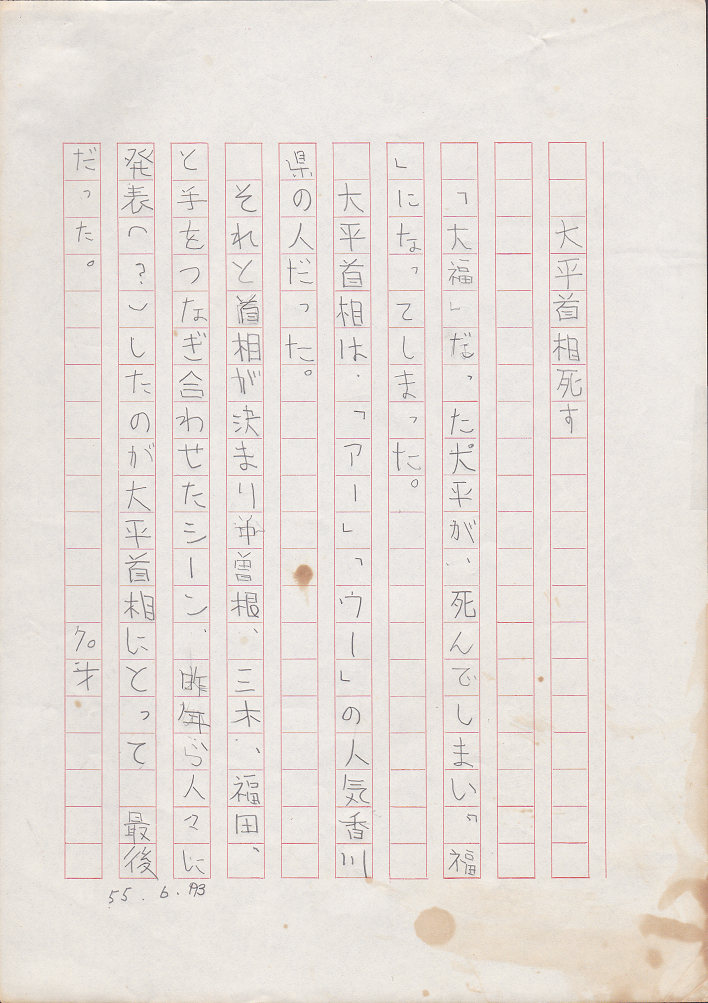 大平首相死す
「大福」だった大平が、死んでしまい「福
」になってしまった。
大平首相は、「アー」「ウー」の人気香川
県の人だった。
それと首相が決まり中曽根、三木、福田、
と手をつなぎ合わせたシーン、昨年 人々に
発表(?)したのが大平首相にとって 最後
だった。
70才
55.6.